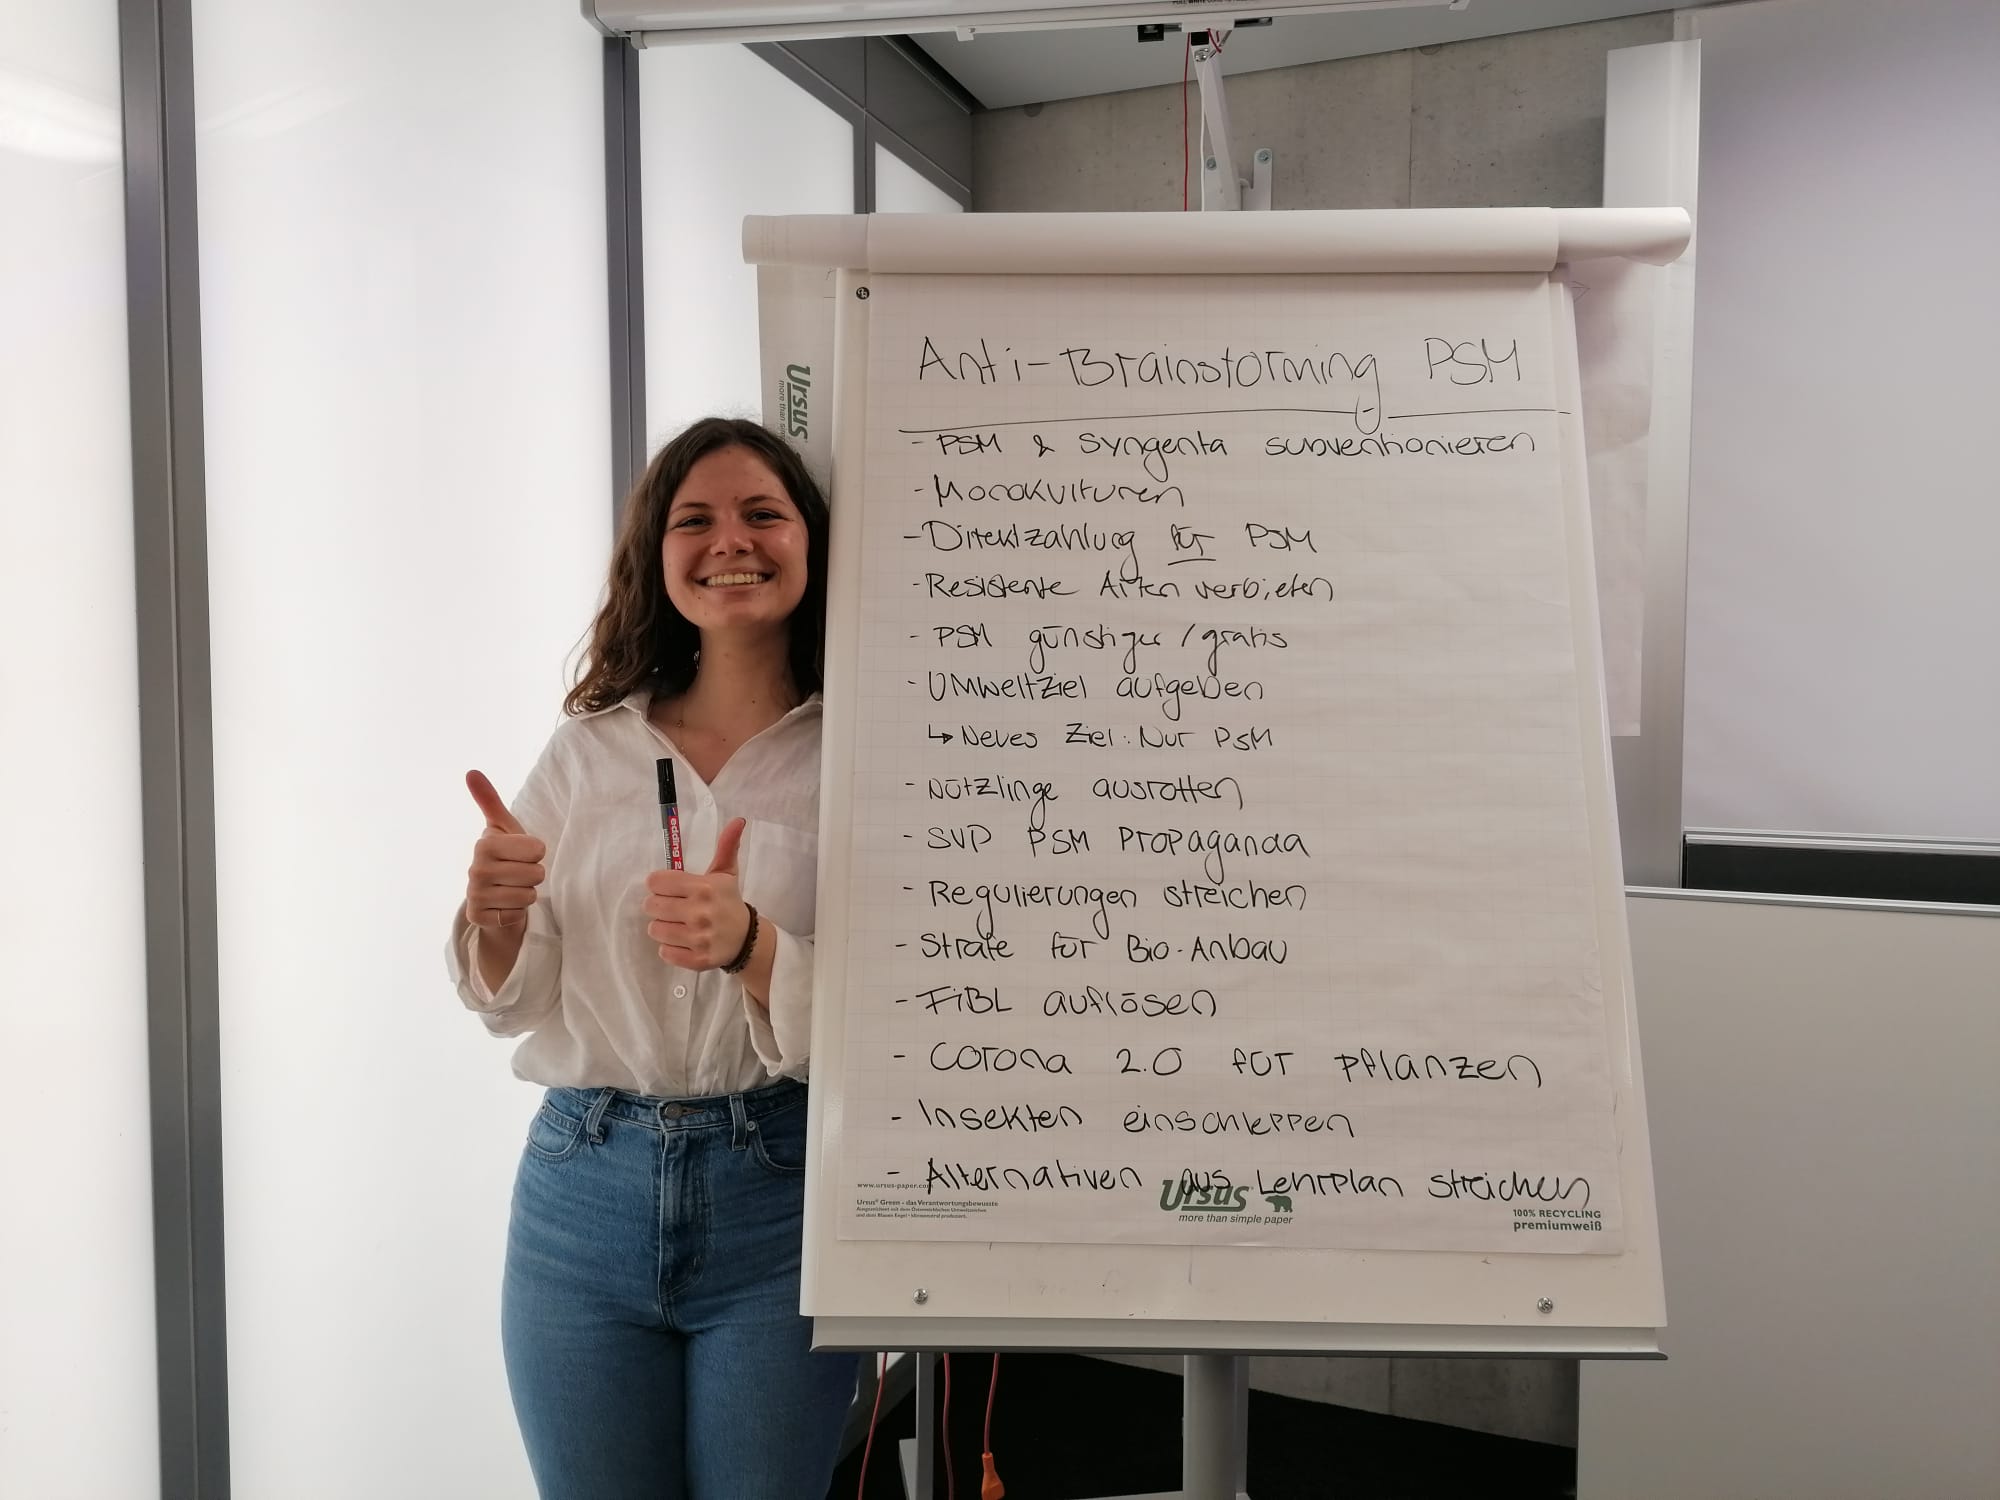 Anti-Brainstorming PSM
- PSM & Syngenta subventionieren
- Monokulturen
- Direktzahlung für PSM
- Resistente Arten verbieten
- PSM günstiger / gratis
- Umweltziel aufgeben
↳ Neues Ziel: Nur PSM
- Nützlinge ausrotten
- SVP PSM Propaganda
- Regulierungen streichen
- Strafe für Bio-Anbau
- FiBL auflösen
- Corona 2.0 für Pflanzen
- Insekten einschleppen
- Alternativen aus Lehrplan streichen
www.ursus-paper.com
Ursus® Green - das Verantwortungsbewusste
Ausgezeichnet mit dem Österreichischen Umweltzeichen
und dem Blauen Engel - klimaneutral produziert.
Ursus
more than simple paper
100% RECYCLING
premiumweiß
Ursus
more than
edding 2